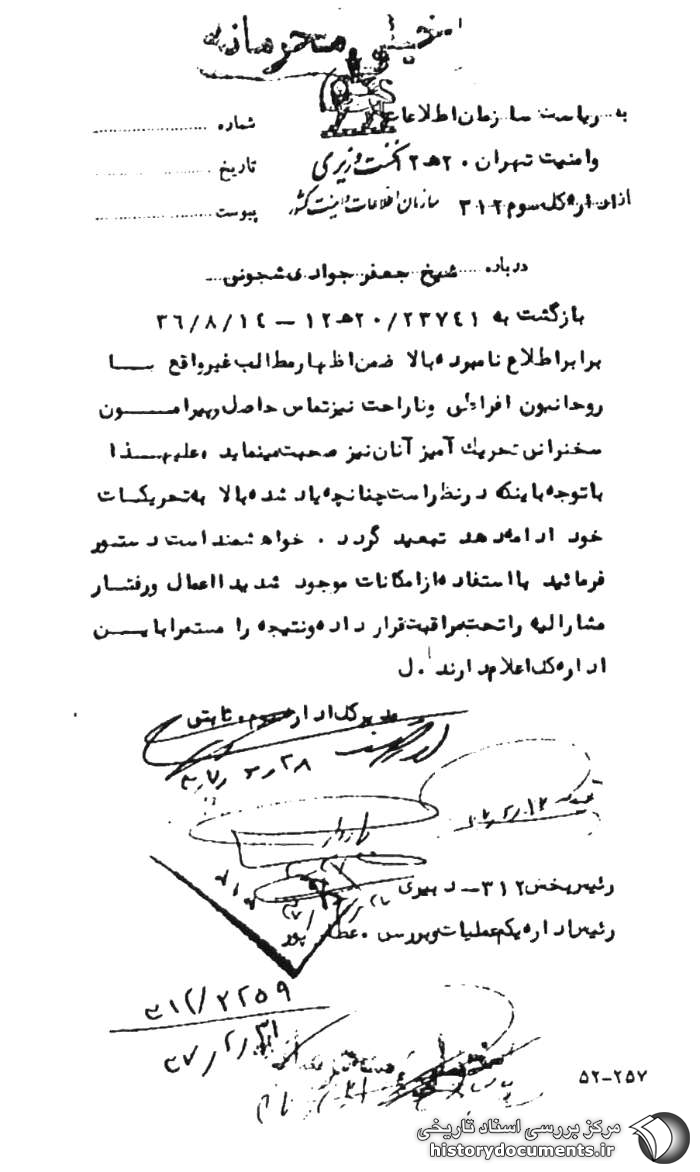 خیلی محرمانه
به ریاست سازمان اطلاعات
شماره
وامنیت تهران ۲۰ هـ ۱۲ نخست وزیری
تاریخ
از اداره کل سوم ۳۱۲ سازمان اطلاعات و امنیت کشور
پیوست
درباره شیخ جعفر جوادی شجونی
بازگشت به ۲۳۷۴۱/۲۰هـ۱۲ – ۳۶/۸/۱۴
برابر اطلاع نامبرده بالا ضمن اظهار مطالب غیرواقع با
روحانیون افراطی و ناراحت نیز تماس حاصل و پیرامون
سخنرانی تحریک آمیز آنان نیز صحبت مینماید ۰ علیهذا
با توجه باینکه در نظر است چنانچه یاد شده بالا به تحریکات
خود ادامه دهد تبعید گردد ۰ خواهشمند است دستور
فرمائید با استفاده از امکانات موجود شدیداً اعمال و رفتار
مشارالیه را تحت مراقبت قرار داده و نتیجه را مستمرا باین
اداره کل اعلام دارند ۰ ل
مدیر کل اداره سوم ۰ ثابتی
رئیس بخش ۳۱۲ – دبیری
رئیس اداره یکم عملیات و بررسی ۰ عطارپور
۳۱۲/۲۲۵۹
۳۷/۲/۳۱
۵۲-۲۵۷
مرکز بررسی اسناد تاریخی
historydocuments.ir